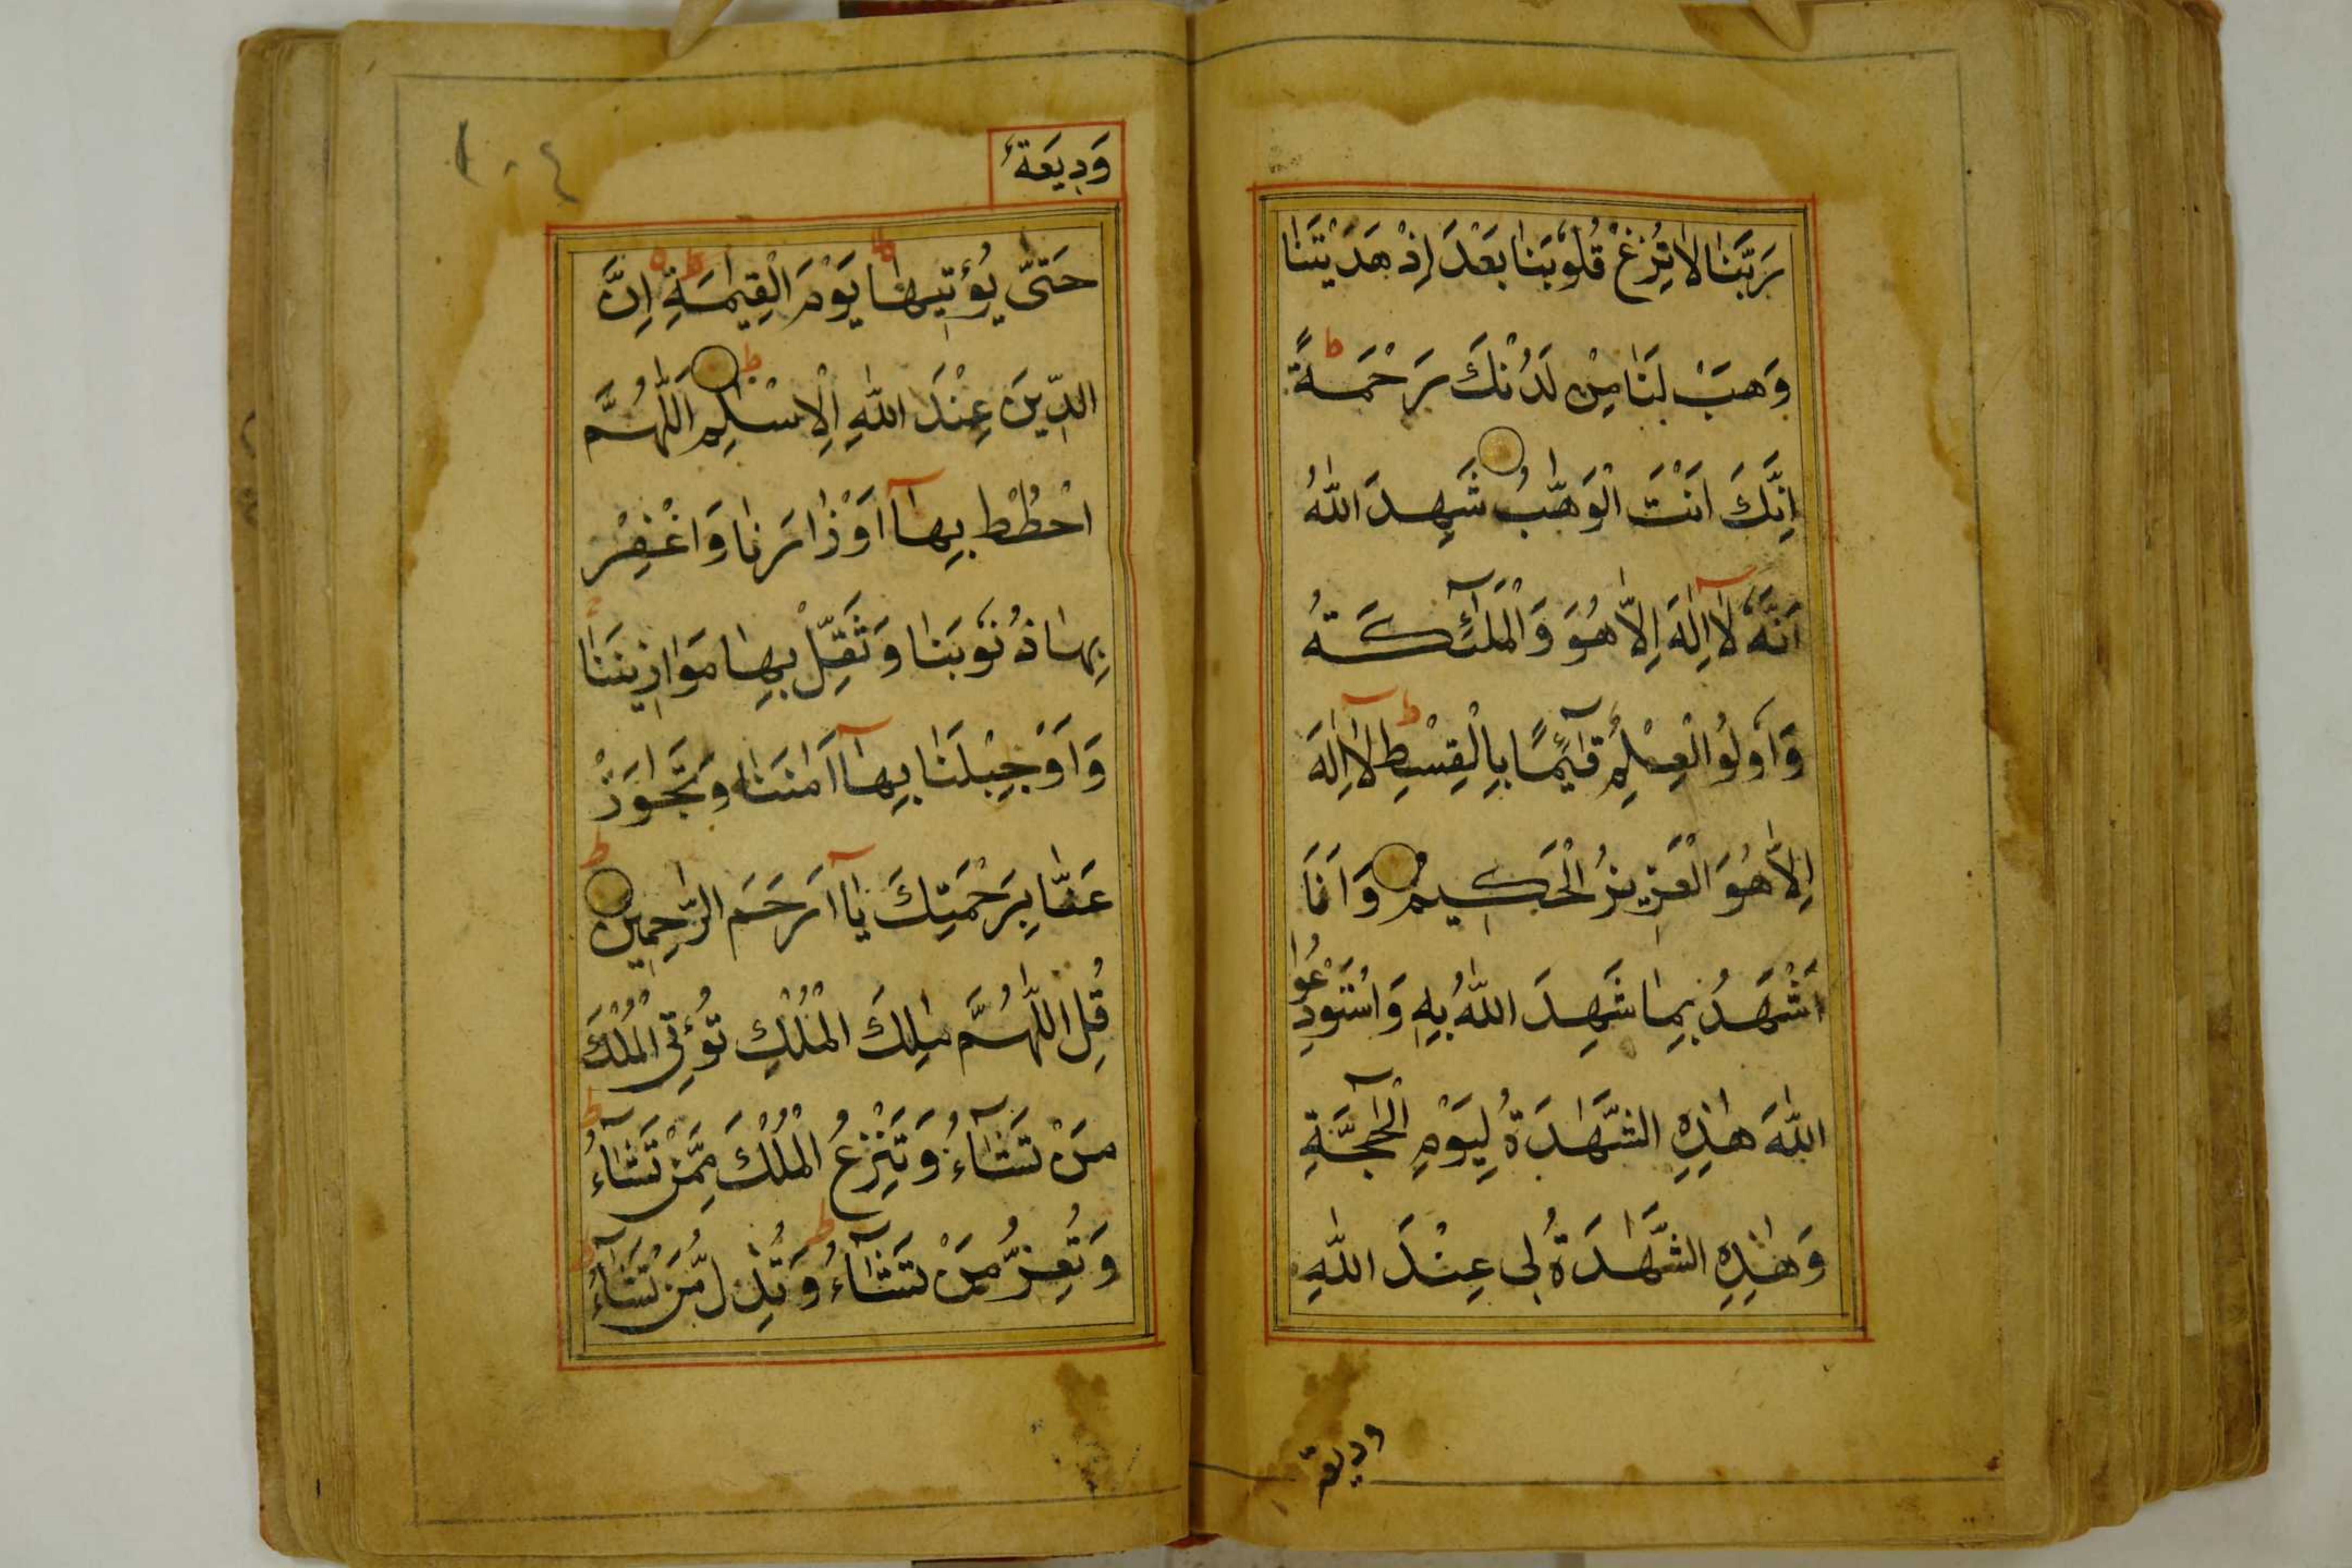 رَبَّنَا لَا تُزِغْ قُلُوبَنَا بَعْدَ اِذْ هَدَيْتَنَا
وَهَبْ لَنَا مِنْ لَدُنْكَ رَحْمَةً ط
اِنَّكَ اَنْتَ الْوَهَّبُ شَهِدَ اللّٰهُ
اَنَّهُ لَآ اِلٰهَ اِلَّا هُوَ وَالْمَلٰٓئِكَتُهُ
وَاُولُوا الْعِلْمِ قَآئِمًا بِالْقِسْطِ ط لَآ اِلٰهَ
اِلَّا هُوَ الْعَزِيزُ الْحَكِيمُ وَاَنَا
اَشْهَدُ بِمَا شَهِدَ اللّٰهُ بِهِ وَاسْتَوْدِعُوا
اللّٰهَ هٰذِهِ الشَّهَادَةُ لِيَوْمِ الْحَآجَّةِ
وَهٰذِهِ الشَّهَادَةُ لِى عِنْدَ اللّٰهِ
وديعة
وَدِيعَةٌ
١٠٤
حَتّٰى يُؤْتِيهَا ط يَوْمَ الْقِيٰمَةِ ط ه اِنَّ
الدِّينَ عِنْدَ اللّٰهِ الْاِسْلٰمِ ط اَللّٰهُمَّ
احْطُطْ بِهَآ اَوْزَارَنَا وَاغْفِرْ
بِهَا ذُنُوبَنَا وَثَقِّلْ بِهَا مَوَازِينَنَا
وَاَوْجِبْ لَنَا بِهَآ اَمَنَنَا وَتَجَاوَزْ
عَنَّا بِرَحْمَتِكَ يَآ اَرْحَمَ الرّٰحِمِينَ ط
قُلِ اللّٰهُمَّ مٰلِكَ الْمُلْكِ تُؤْتِى الْمُلْكَ
مَنْ تَشَآءُ وَتَنْزِعُ الْمُلْكَ مِمَّنْ تَشَآءُ ط
وَتُعِزُّ مَنْ تَشَآءُ ط وَتُذِلُّ مَنْ تَشَآءُ ط